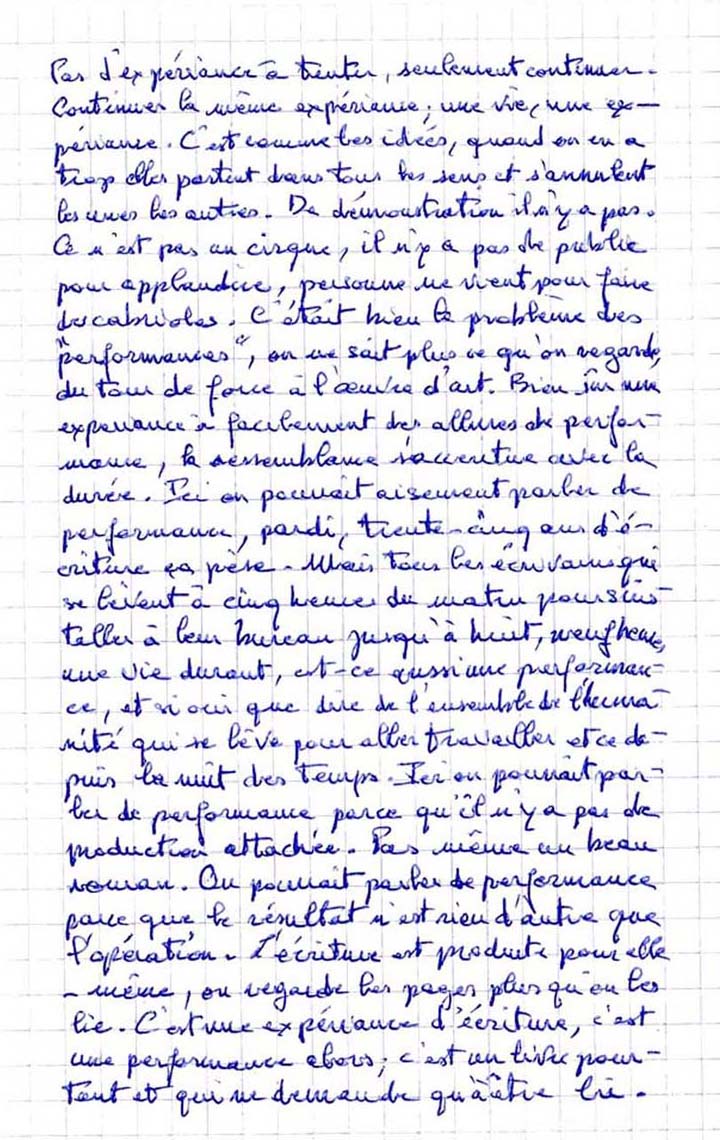 Pas d'expériance à tenter, seulement continuer.
Continuer la même expériance; une vie, une ex-
périance. C'est comme les idées, quand on en a
trop elles partent dans tous les sens et s'annulent
les unes les autres. De démonstration il n'y a pas.
Ce n'est pas un cirque, il n'y a pas de public
pour applaudire, personne ne vient pour faire
des cabrioles. C'était bien le problème des
"performances", on ne sait plus ce qu'on regarde,
du tour de force à l'œuvre d'art. Bien sûr une
expériance a facilement des allures de perfor-
mance, la ressemblance s'accentue avec la
durée. Ici on pouvait aisement parler de
performance, pardi, trente-cinq ans d'é-
criture ça pèse. Mais tous les écrivains qui
se lèvent à cinq heures du matin pour s'ins-
taller à leur bureau jusqu'à huit, neuf heures,
une vie durant, est-ce aussi une performan-
ce, et si oui que dire de l'ensemble de l'huma-
nité qui se lève pour aller travailler et ce de-
puis la nuit des temps. Ici on pourrait par-
ler de performance parce qu'il n'y a pas de
production attachée. Pas même un beau
roman. On pouvait parler de performance
parce que le résultat n'est rien d'autre que
l'opération. L'écriture est produite pour elle
-même, on regarde les pages plus qu'on les
lie. C'est une expériance d'écriture, c'est
une performance alors; c'est un livre pour-
tant et qui ne demande qu'à être lie.